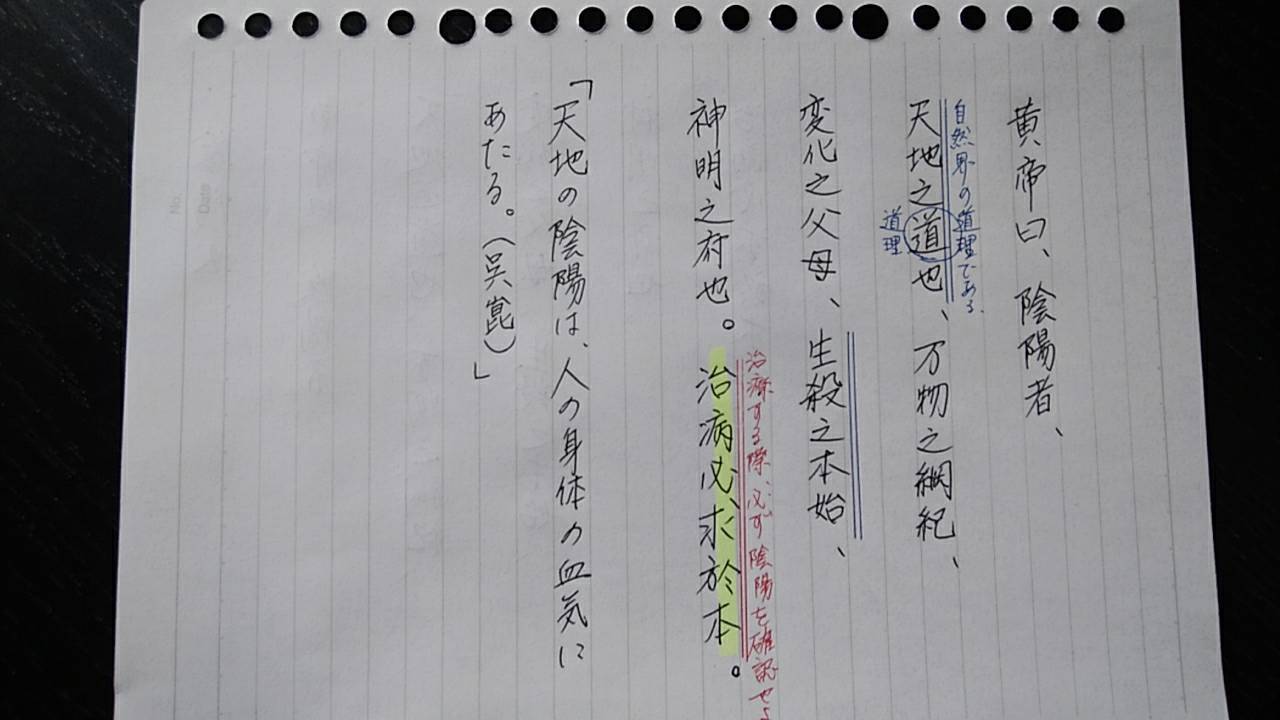 黄帝曰、陰陽者、
自然界の道理である。
天地之道也、万物之綱紀、
道理
変化之父母、生殺之本始、
治療する際、必ず陰陽を確認せよ
神明之府也。治病必求於本。
「天地の陰陽は、人の身体の血気に
あたる。(呉崑)」
No.
Date